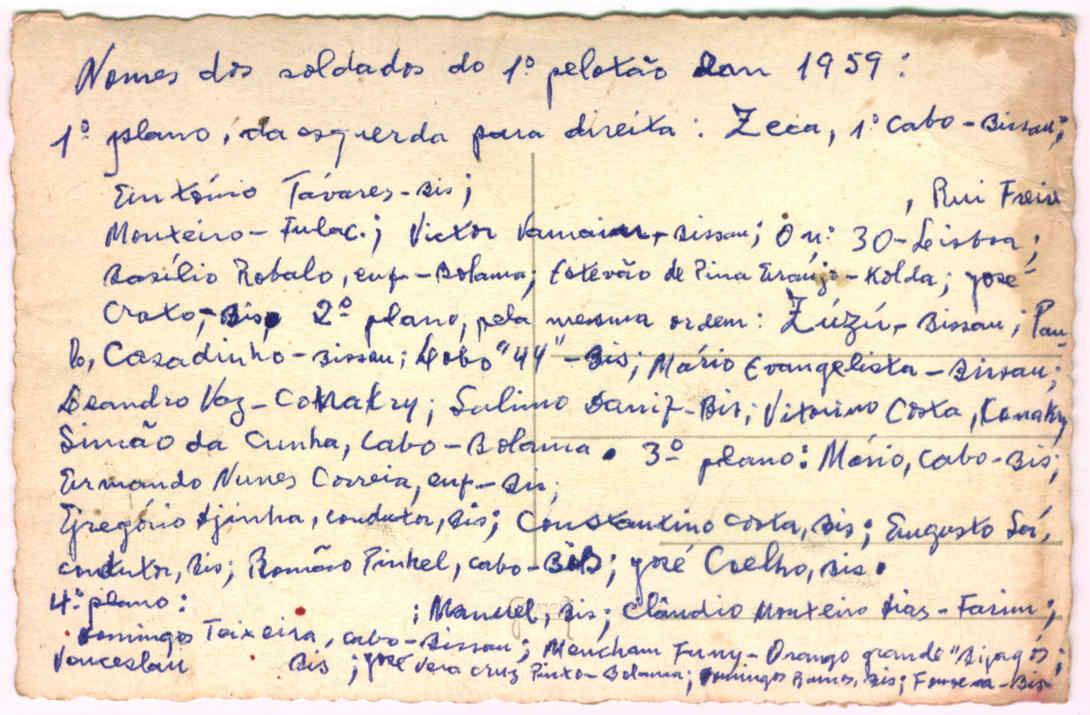 Nomes dos soldados do 1º pelotão em 1959:
1º plano, da esquerda para direita: Zeca, 1º cabo-Bissau;
António Tavares-Bis; , Rui Freire
Monteiro-Fulac.; Victor -Bissau; O nº 30-Lisboa;
Basílio Robalo, enf-Bolama; Estevão de Pina Araújo-Kolda; José
Crato,-Bis. 2º plano, pela mesma ordem: Zúzú-Bissau; Pau-
lo, Casadinho-Bissau; Lobo "44"-Bis; Mário Evangelista-Bissau;
Leandro Vaz-Conakry; Salimo Danif-Bis; Vitorino Costa, Conakry
Simão da Cunha, Cabo-Bolama. 3º plano: Mário, Cabo-Bis;
Armando Nunes Correia, enf-Bis;
Gregório Ajinha, condutor, Bis; Constantino Costa, Bis; Augusto Sá,
condutor, Bis; Romão Pinhel, cabo-Bis; José Coelho, Bis.
4º plano: ; Manuel, Bis; Cláudio Monteiro Dias-Farim;
Domingos Teixeira, cabo-Bissau; Mencham Funy-Orango grande "Bijagós;
Vanceslau Bis; José Vera Cruz Pinto-Bolama; Domingos Ramos, Bis; Fonseca-Bis